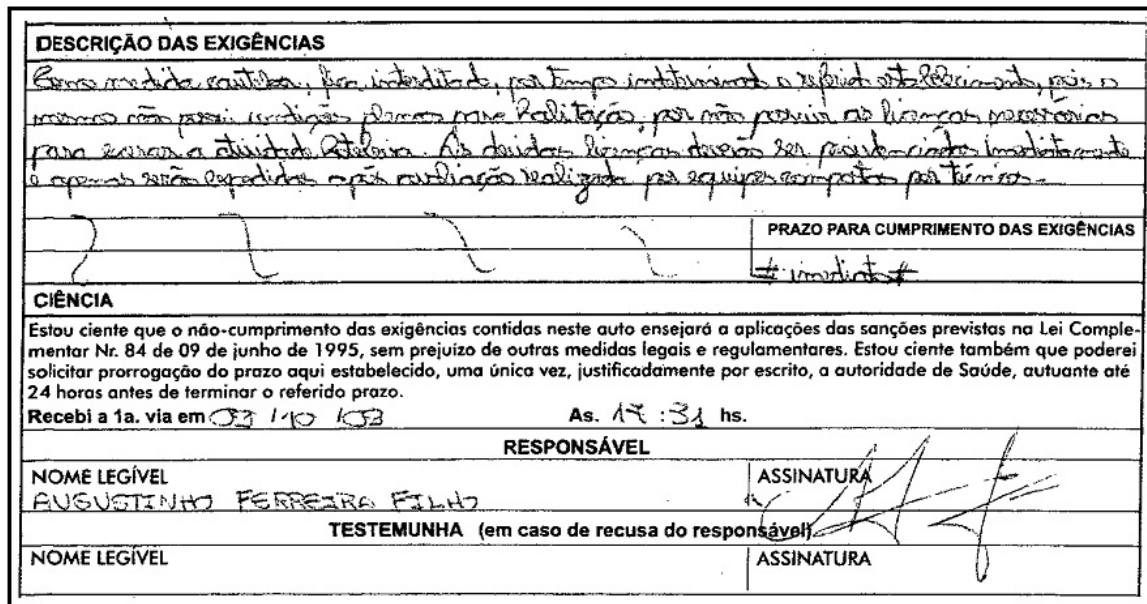 DESCRIÇÃO DAS EXIGÊNCIAS
Como medida cautelar, fica interditado, por tempo indeterminado o referido estabelecimento, pois o
mesmo não possui condições plenas para habilitação, por não possuir as licenças necessárias
para exercer a atividade hoteleira. As devidas licenças deverão ser providenciadas imediatamente
e apenas serão expedidas após avaliação realizada por equipes compostas por técnicos.
PRAZO PARA CUMPRIMENTO DAS EXIGÊNCIAS
# imediato #
CIÊNCIA
Estou ciente que o não-cumprimento das exigências contidas neste auto ensejará a aplicações das sanções previstas na Lei Comple-
mentar Nr. 84 de 09 de junho de 1995, sem prejuízo de outras medidas legais e regulamentares. Estou ciente também que poderei
solicitar prorrogação do prazo aqui estabelecido, uma única vez, justificadamente por escrito, a autoridade de Saúde, autuante até
24 horas antes de terminar o referido prazo.
Recebi a 1a. via em 03 / 10 / 03 As. 17 : 31 hs.
RESPONSÁVEL
NOME LEGÍVEL ASSINATURA
AUGUSTINHO FERREIRA FILHO
TESTEMUNHA (em caso de recusa do responsável)
NOME LEGÍVEL ASSINATURA